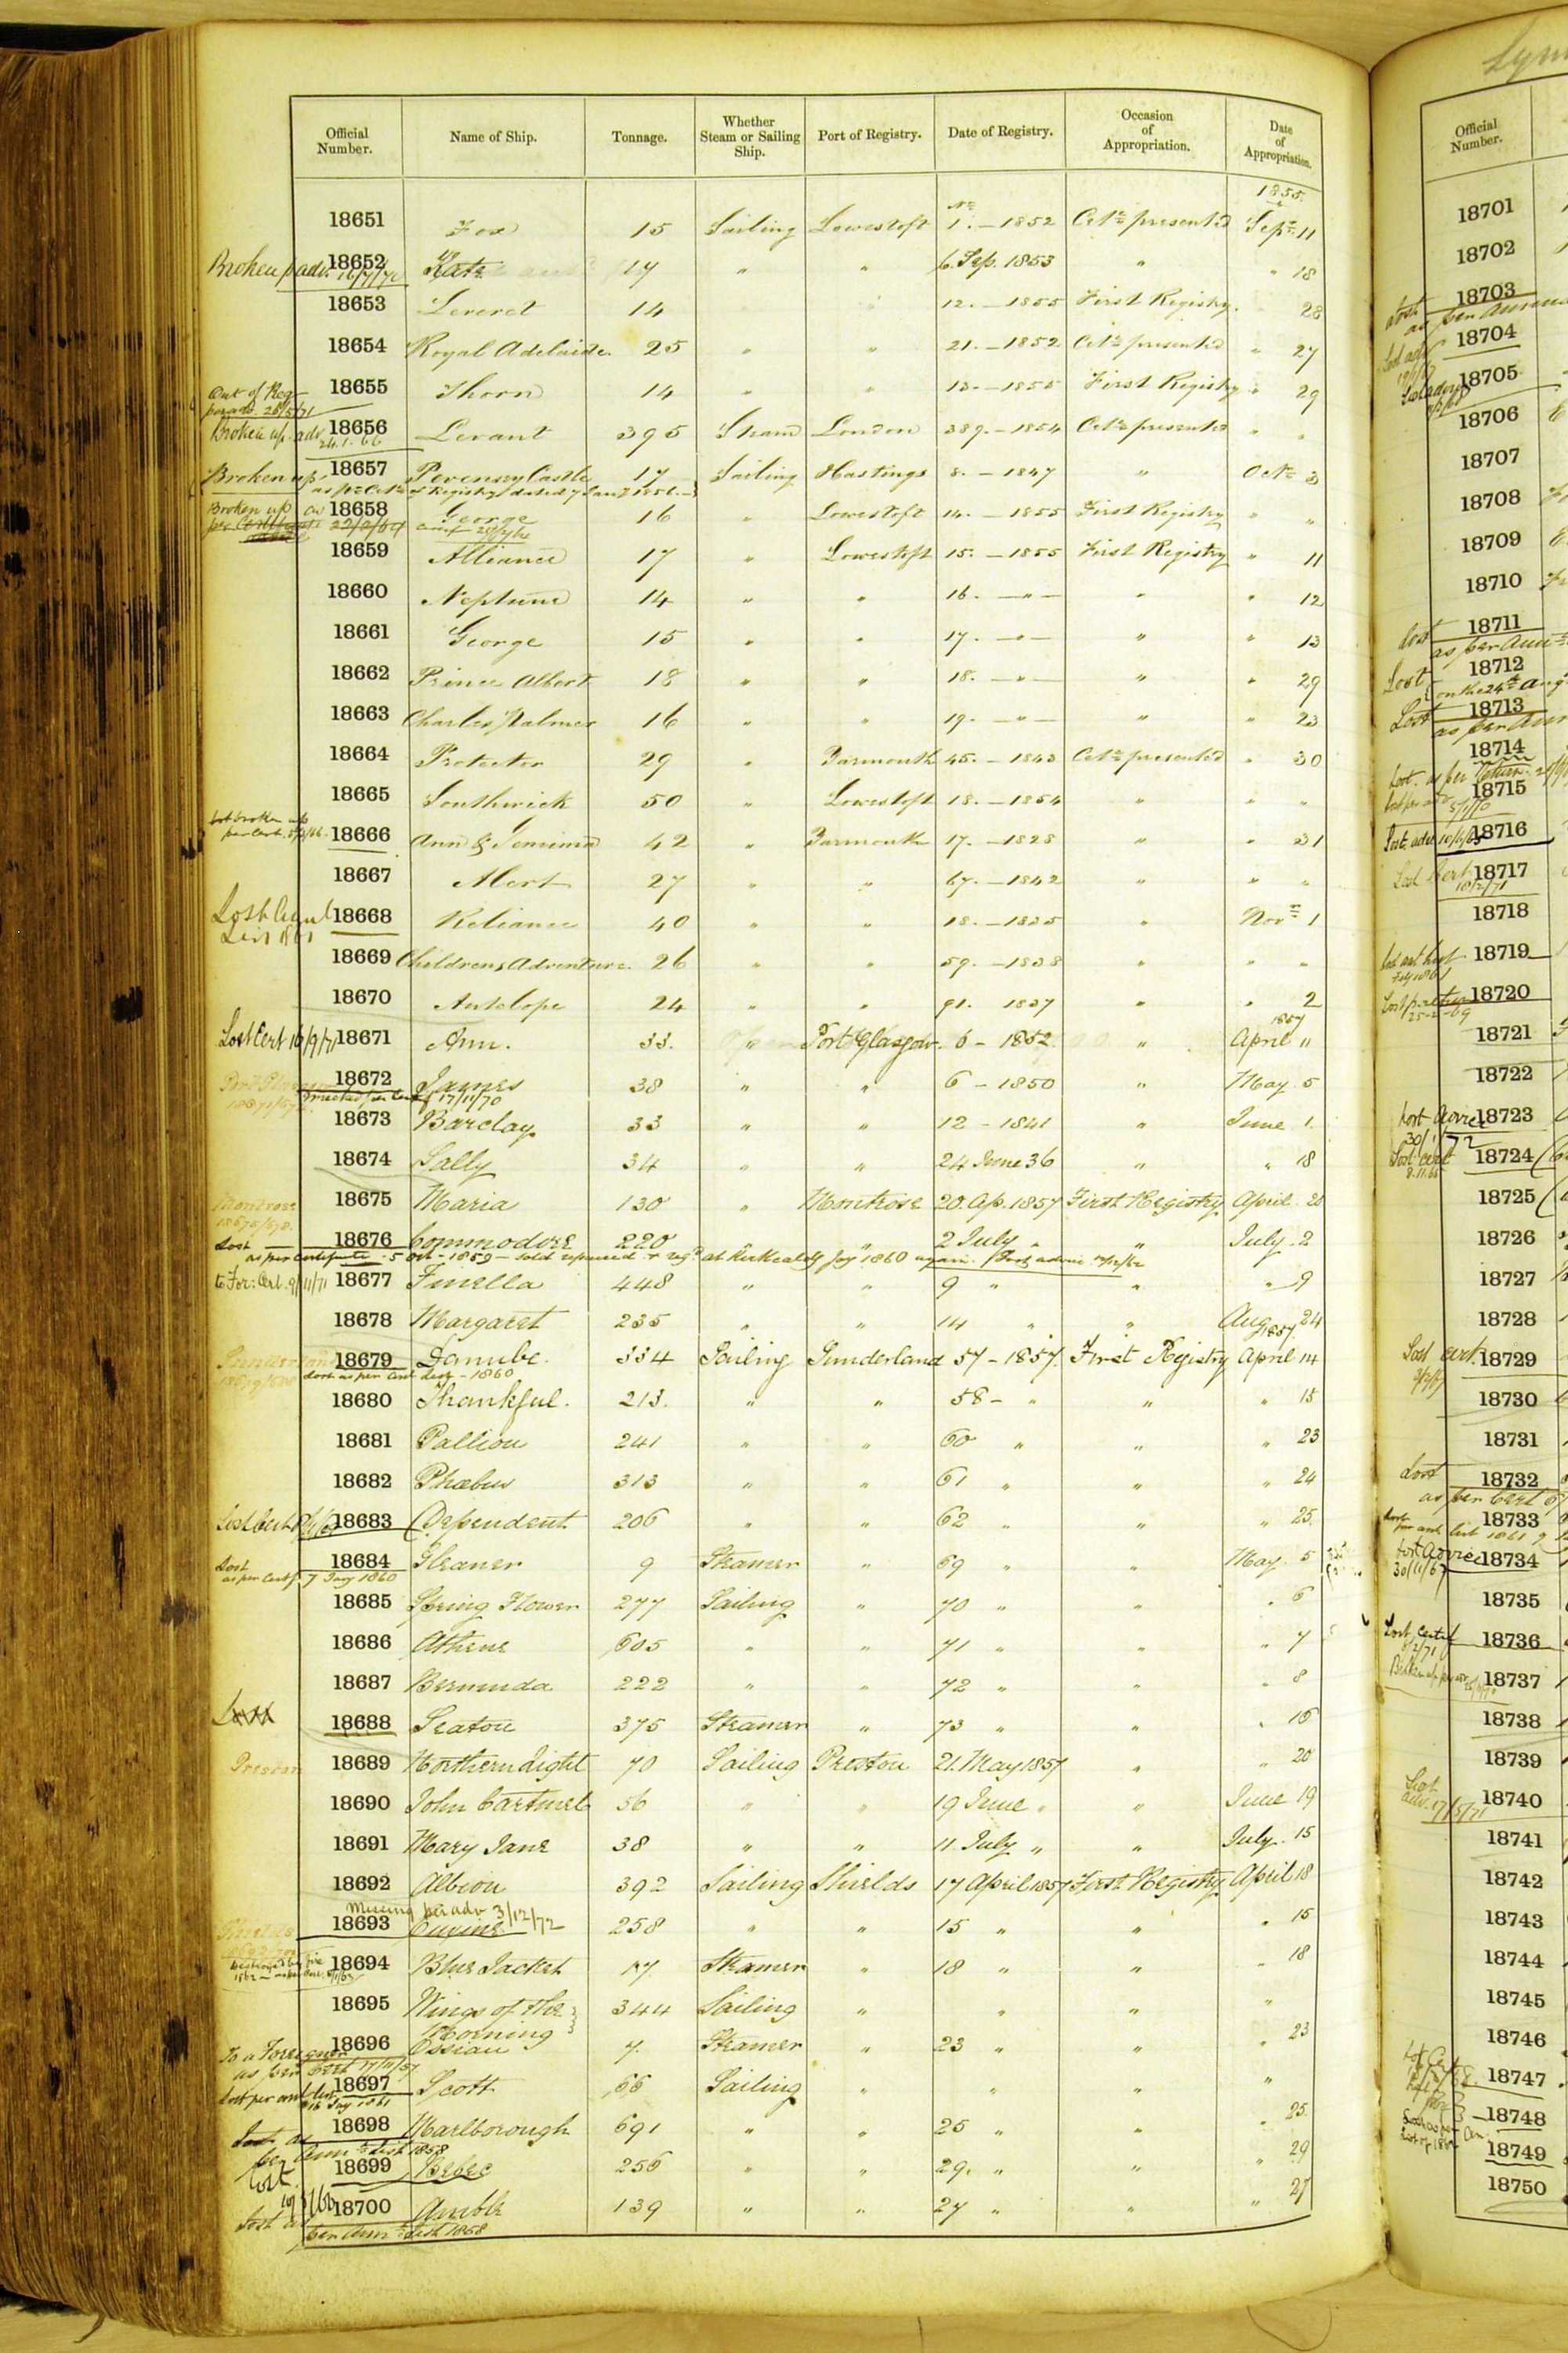 Official Number. Name of Ship. Tonnage. Whether Steam or Sailing Ship. Port of Registry. Date of Registry. Occasion of Appropriation. Date of Appropriation.
1855.
18651 Fox 15 Sailing Lowestoft 1. — 1852 Certe presented Sept. 11
Broken up adv. 18652 Kate 17 " " 6. Sep. 1853 " " 18
18653 Leveret 14 " 12. — 1855 First Registry. 28
18654 Royal Adelaide. 25 " " 21. — 1852 Certe presented " 27
Out of Reg per adv. 26/5/71 18655 Thorn 14 " " 13. — 1855 First Registry " 29
Broken up adv 24.1.66 18656 Levant 395 Steam London 389. — 1854 Certe presented " "
Broken up 18657 Pevensey Castle 17 Sailing Hastings 8. — 1847 " Octr 3
as pr Certe of Registry dated 7 Jany 1856.
Broken up 18658 George 16 " Lowestoft 14. — 1855 First Registry " "
18659 Alliance 17 " Lowestoft 15. — 1855 First Registry " 11
18660 Neptune 14 " " 16. — " — " " 12
18661 George 15 " " 17. — " — " " 13
18662 Prince Albert 18 " " 18. — " — " " 29
18663 Charles Palmer 16 " " 19. — " — " " 23
18664 Protector 29 " Yarmouth 45. — 1843 Certe presented " 30
18665 Southwick 50 " Lowestoft 18. — 1854 " " "
broken up per Cert. 18666 Ann & Jemima 42 " Yarmouth 17. — 1828 " " 31
18667 Alert 27 " " 67. — 1842 " " "
Lost Annl List 1861 18668 Reliance 40 " " 18. — 1835 " Novr 1
18669 Childrens Adventure. 26 " " 59. — 1838 " " "
18670 Antelope 24 " " 91. 1837 " " 2
1857
Lost Cert 16/9/71 18671 Ann. 33. " Port Glasgow. 6 - 1852. " April "
18672 James 38 " " 6 - 1850 " May 5
Wrecked per Cert 17/11/70
18673 Barclay 33 " " 12 - 1841 " June 1
18674 Sally 34 " " 24 June 36 " " 18
Montrose 18675 Maria 130 " Montrose 20. Ap. 1857 First Registry April 20
Lost 18676 Commodore 220 " " 2 July " " July. 2
as per Certificate 5 Oct - 1859 — sold repaired & regd at Kirkcaldy Jay 1860 again.
to For: Cert. 9/11/71 18677 Finella 448 " " 9 " " " 9
18678 Margaret 235 " " 14 " " Aug 24
1857
Sunderland 18679 Danube. 334 Sailing Sunderland 57 - 1857. First Registry April 14
Lost as per Anl List - 1860
18680 Thankful. 213. " " 58 - " " " 15
18681 Pallion 241 " " 60 " " " 23
18682 Phœbus 313 " " 61 " " " 24
Lost Cert 18683 Dependent 206 " " 62 " " " 25.
Lost 18684 Gleaner 9 Steamer " 69 " " May. 5
as per Certf. 7 Jay 1860
18685 Spring Flower 277 Sailing " 70 " " " 6
18686 Athene 605 " " 71 " " " 7
18687 Bermuda 222 " " 72 " " " 8
Lost 18688 Seaton 375 Steamer " 73 " " " 15
Preston 18689 Northern Light 70 Sailing Preston 21. May 1857 " " 20
18690 John Cartmel 56 " " 19 June " " June 19
18691 Mary Jane 38 " " 11 July " " July. 15
18692 Albion 392 Sailing Shields 17 April 1857 First Registry April 18
Missing per adv 3/12/72
18693 Euxine 258 " " 15 " " " 15
Destroyed by fire 18694 Blue Jacket 17 Steamer " 18 " " " 18
18695 Wings of the Morning 344 Sailing " " " "
To a Foreigner as per Cert 17/11/57 18696 Ossian 7. Steamer " 23 " " " 23
Lost per anl list 16 Jay 1861 18697 Scott 66 Sailing " " " "
Lost as per Annl List 1858 18698 Marlborough 691 " " 25 " " " 25
Lost 18699 Bebec 256 " " 29. " " " 29
Lost as per Annl List 1858 18700 Amble 139 " " 27 " " " 27
Official Number.
18701
18702
Lost 18703
18704
18705
18706
18707
18708
18709
18710
Lost 18711
as per Ann
Lost 18712
on the 24th Aug
Lost 18713
as per Ann
18714
Lost. as per Return.
18715
Lost adv 18716
Lost Cert 18717
18718
18719
18720
18721
18722
Lost Advice 18723
30/1/72
Lost Cert 18724
18725
18726
18727
18728
Lost Cert. 18729
18730
18731
Lost 18732
as per Cert
18733
Lost Advice 18734
30/11/67
18735
Lost Certf 18736
18737
18738
18739
Lost adv. 17/5/71 18740
18741
18742
18743
18744
18745
18746
18747
18748
18749
18750